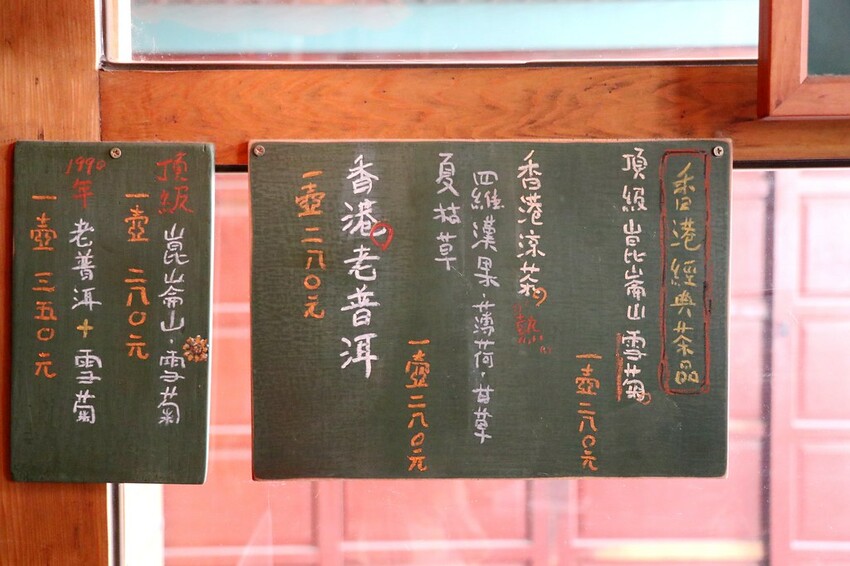 香港經典茶品
頂級崑崙山雪菊
一壺二八〇元
香港涼茶 熱
四維漢果·薄荷·甘草
夏枯草
一壺二八〇元
香港老普洱
一壺二八〇元
頂級崑崙山·雪菊
一壺 二八〇元
1990年老普洱+雪菊
一壺 三五〇元